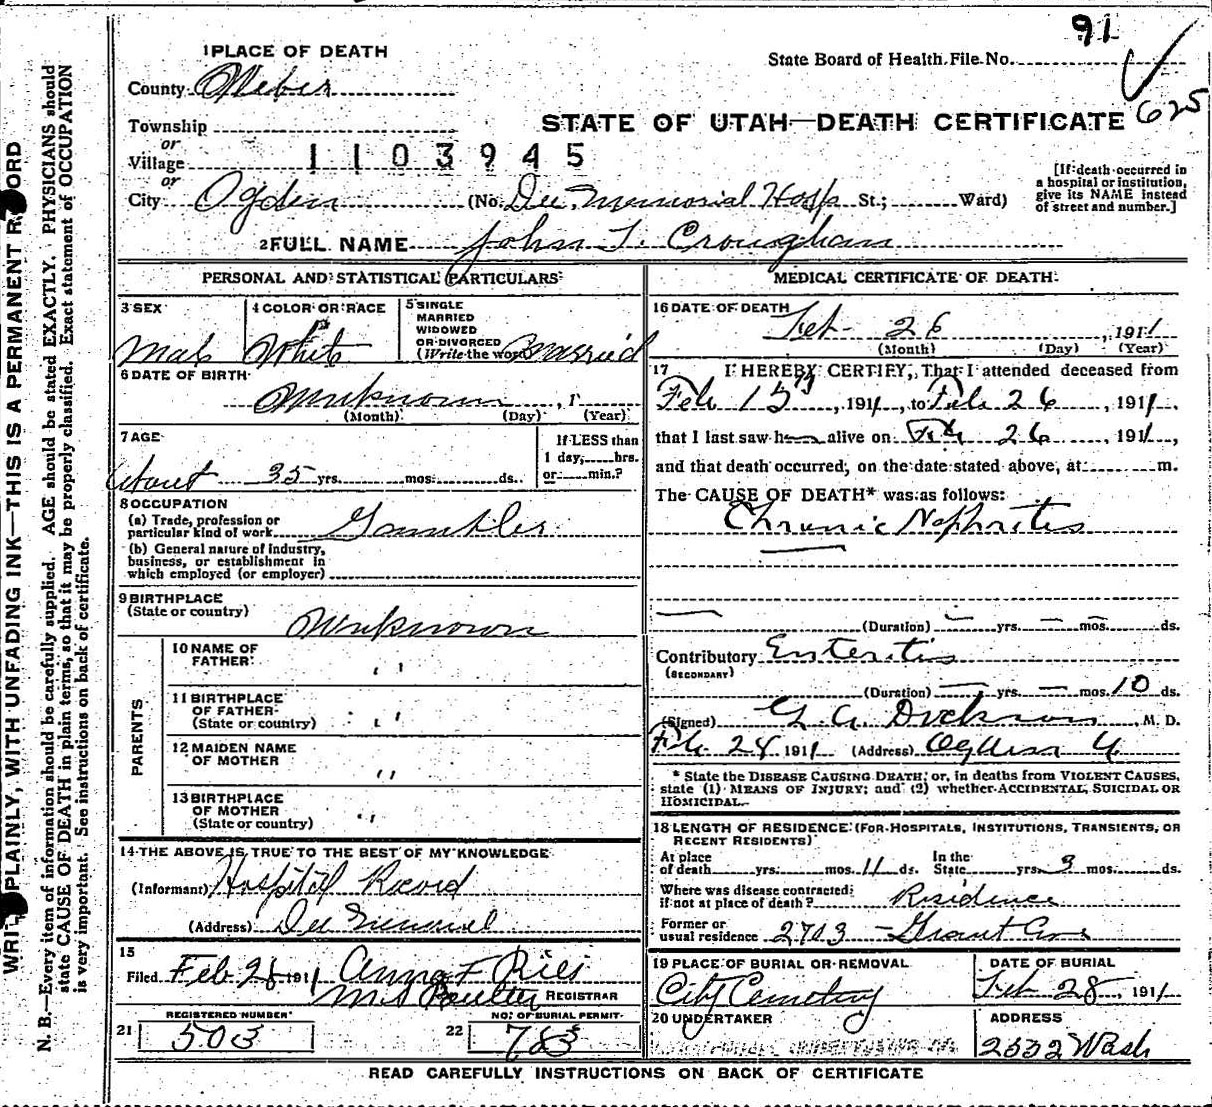 91
State Board of Health File No.
625
1 PLACE OF DEATH
County Weber
STATE OF UTAH—DEATH CERTIFICATE
Township
or
Village 1103945
or
City Ogden (No. Dee Memorial Hosp St.; Ward)
[If death occurred in
a hospital or institution,
give its NAME instead
of street and number.]
2 FULL NAME John T. Croughan
PERSONAL AND STATISTICAL PARTICULARS
3 SEX
Male
4 COLOR OR RACE
White
5 SINGLE
MARRIED
WIDOWED
OR DIVORCED
(Write the word) Married
6 DATE OF BIRTH
Unknown, 1
(Month) (Day) (Year)
7 AGE
About 35 yrs. mos. ds.
If LESS than
1 day, hrs.
or min.?
8 OCCUPATION
(a) Trade, profession or
particular kind of work Gambler
(b) General nature of industry,
business, or establishment in
which employed (or employer)
9 BIRTHPLACE
(State or country)
Unknown
PARENTS
10 NAME OF
FATHER " 
11 BIRTHPLACE
OF FATHER
(State or country) "
12 MAIDEN NAME
OF MOTHER "
13 BIRTHPLACE
OF MOTHER
(State or country) "
14 THE ABOVE IS TRUE TO THE BEST OF MY KNOWLEDGE
(Informant) Hospital Record
(Address) Dee Memorial
15
Filed Feb 28 1911 Anna F Ries
Mrs Poulter REGISTRAR
REGISTERED NUMBER
21 503
NO. OF BURIAL PERMIT
22 763
MEDICAL CERTIFICATE OF DEATH
16 DATE OF DEATH
Feb - 26, 1911
(Month) (Day) (Year)
17 I HEREBY CERTIFY, That I attended deceased from
Feb 15th, 1911, to Feb 26, 1911,
that I last saw him alive on Feb 26, 1911,
and that death occurred, on the date stated above, at m.
The CAUSE OF DEATH* was as follows:
Chronic Nephritis
(Duration) — yrs. — mos. ds.
Contributory Enteritis
(SECONDARY)
(Duration) — yrs. — mos. 10 ds.
(Signed) Dickson, M. D.
Feb. 28 1911 (Address) Ogden U
* State the DISEASE CAUSING DEATH; or, in deaths from VIOLENT CAUSES,
state (1) MEANS OF INJURY; and (2) whether ACCIDENTAL, SUICIDAL OR
HOMICIDAL.
18 LENGTH OF RESIDENCE (FOR HOSPITALS, INSTITUTIONS, TRANSIENTS, OR
RECENT RESIDENTS)
At place
of death yrs. mos. 11 ds. In the
State yrs. 3 mos. ds.
Where was disease contracted;
if not at place of death? Residence
Former or
usual residence 2703 - Grant Ave
19 PLACE OF BURIAL OR REMOVAL
City Cemetery
DATE OF BURIAL
Feb 28, 1911
20 UNDERTAKER
ADDRESS
2532 Wash
READ CAREFULLY INSTRUCTIONS ON BACK OF CERTIFICATE
WRITE PLAINLY, WITH UNFADING INK—THIS IS A PERMANENT RECORD
N. B.—Every item of information should be carefully supplied. AGE should be stated EXACTLY. PHYSICIANS should
state CAUSE OF DEATH in plain terms, so that it may be properly classified. Exact statement of OCCUPATION
is very important. See instructions on back of certificate.